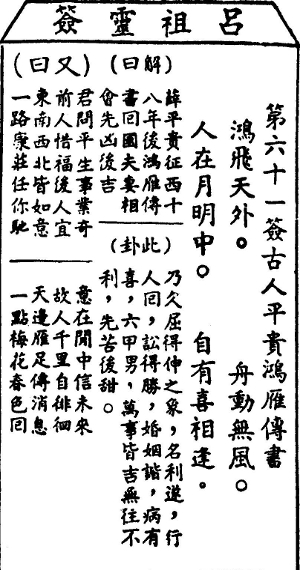 呂祖靈簽
第六十一簽古人平貴鴻雁傳書
鴻飛天外。 舟動無風。
人在月明中。 自有喜相逢。
（解曰）
薛平貴征西十
八年後鴻雁傳
書回國夫妻相
會先凶後吉
（此卦）
乃久屈得伸之象，名利遂，行
人回，訟得勝，婚姻諧，病有
喜，六甲男，萬事皆吉無往不
利，先苦後甜。
（又曰）
君問平生事業奇
前人惜福後人宜
東南西北皆如意
一路康莊任你馳
意在閒中信未來
故人千里自徘徊
天邊雁足傳消息
一點梅花春色回